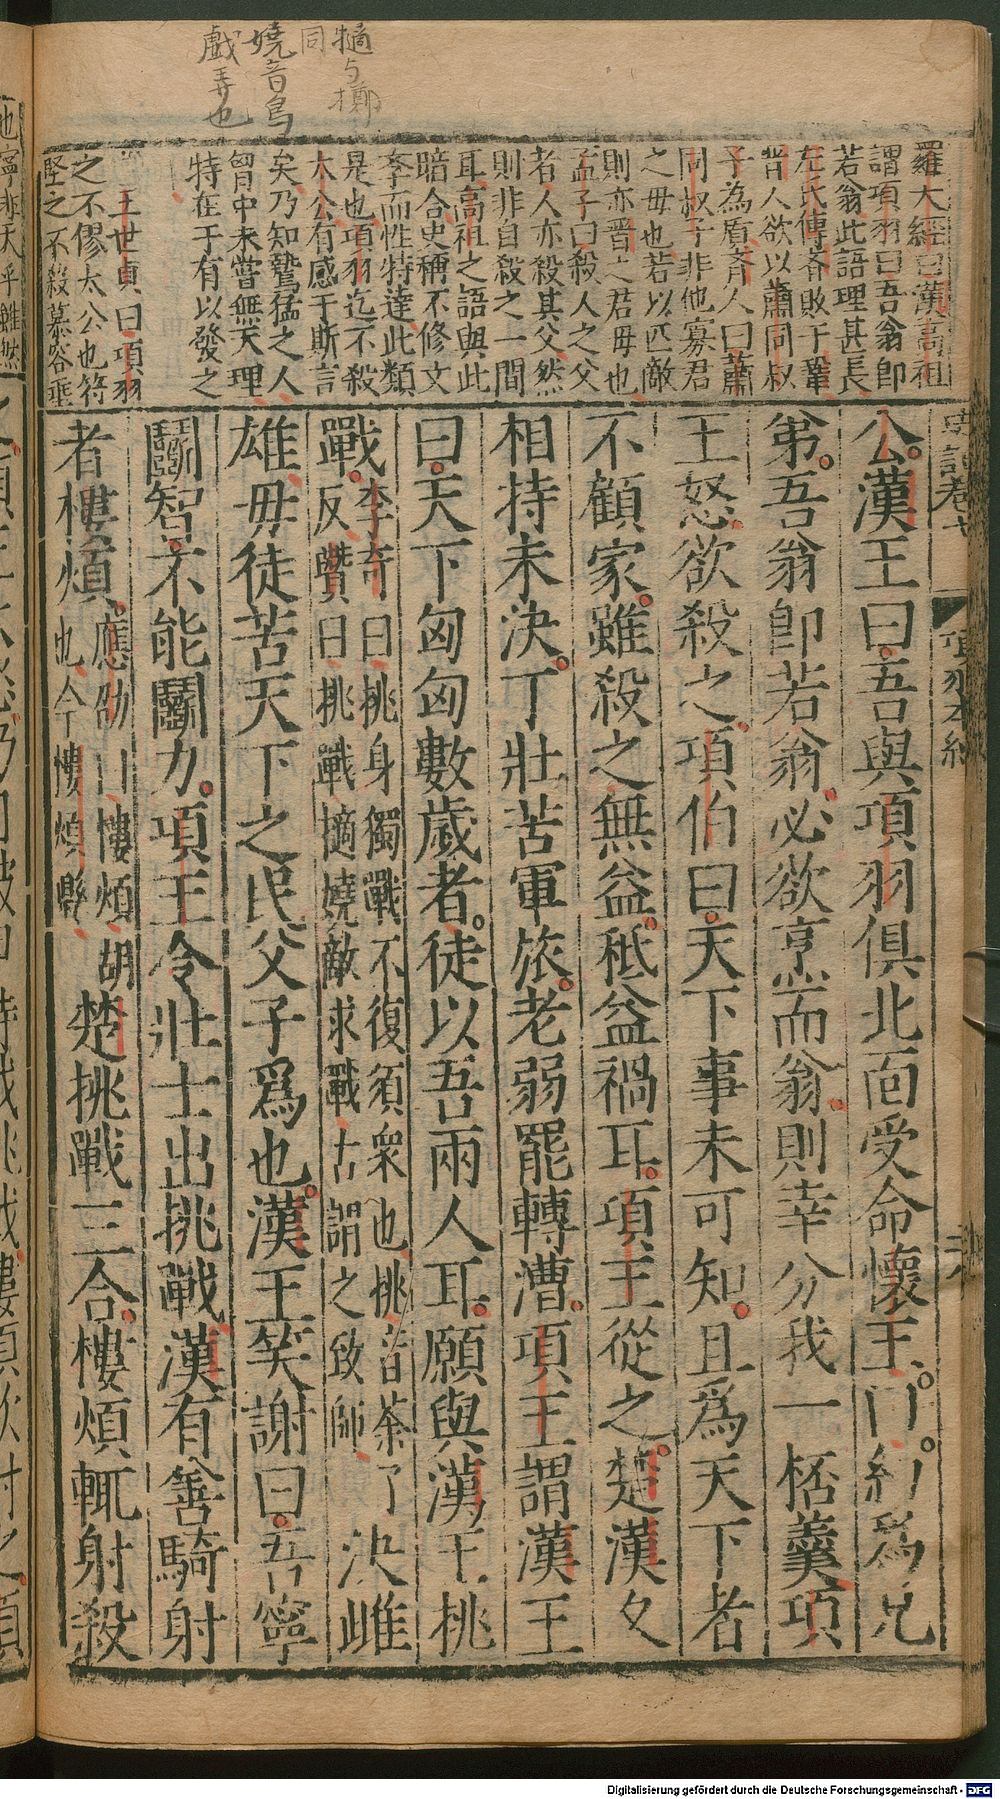 樀与擲
同
嬈音鳥
戲弄也
羅大經曰漢高祖
謂項羽曰吾翁卽
若翁此語理甚長
左氏傳齊敗于鞌
晉人欲以蕭同叔
子為質齊人曰蕭
同叔子非他寡君
之毋也若以匹敵
則亦晉之君毋也
孟子曰殺人之父
者人亦殺其父然
則非自殺之一間
耳高祖之語與此
暗合史稱不修文
學而性特達此類
是也項羽迄不殺
太公有感于斯言
矣乃知鷙猛之人
胷中未嘗無天理
特在于有以發之
王世貞曰項羽
之不僇太公也符
堅之不殺慕容垂
史記卷七
項羽本紀
公漢王曰吾與項羽俱北面受命懷王曰約爲兄
弟吾翁卽若翁必欲烹而翁則幸分我一桮羹項
王怒欲殺之項伯曰天下事未可知且爲天下者
不顧家雖殺之無益秪益禍耳項王從之楚漢久
相持未決丁壯苦軍旅老弱罷轉漕項王謂漢王
曰天下匈匈數歲者徒以吾兩人耳願與漢王挑
戰李奇曰挑身獨戰不復須衆也挑音荼了
反瓚曰挑戰擿嬈敵求戰古謂之致師決雌
雄毋徒苦天下之民父子爲也漢王笑謝曰吾寧
鬭智不能鬭力項王令壯士出挑戰漢有善騎射
者樓煩應劭曰樓煩胡
也今樓煩縣楚挑戰三合樓煩輒射殺
Digitalisierung gefördert durch die Deutsche Forschungsgemeinschaft - DFG